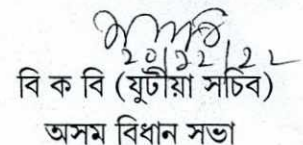 20/12/22
বি ক বি (যুটীয়া সচিব)
অসম বিধান সভা